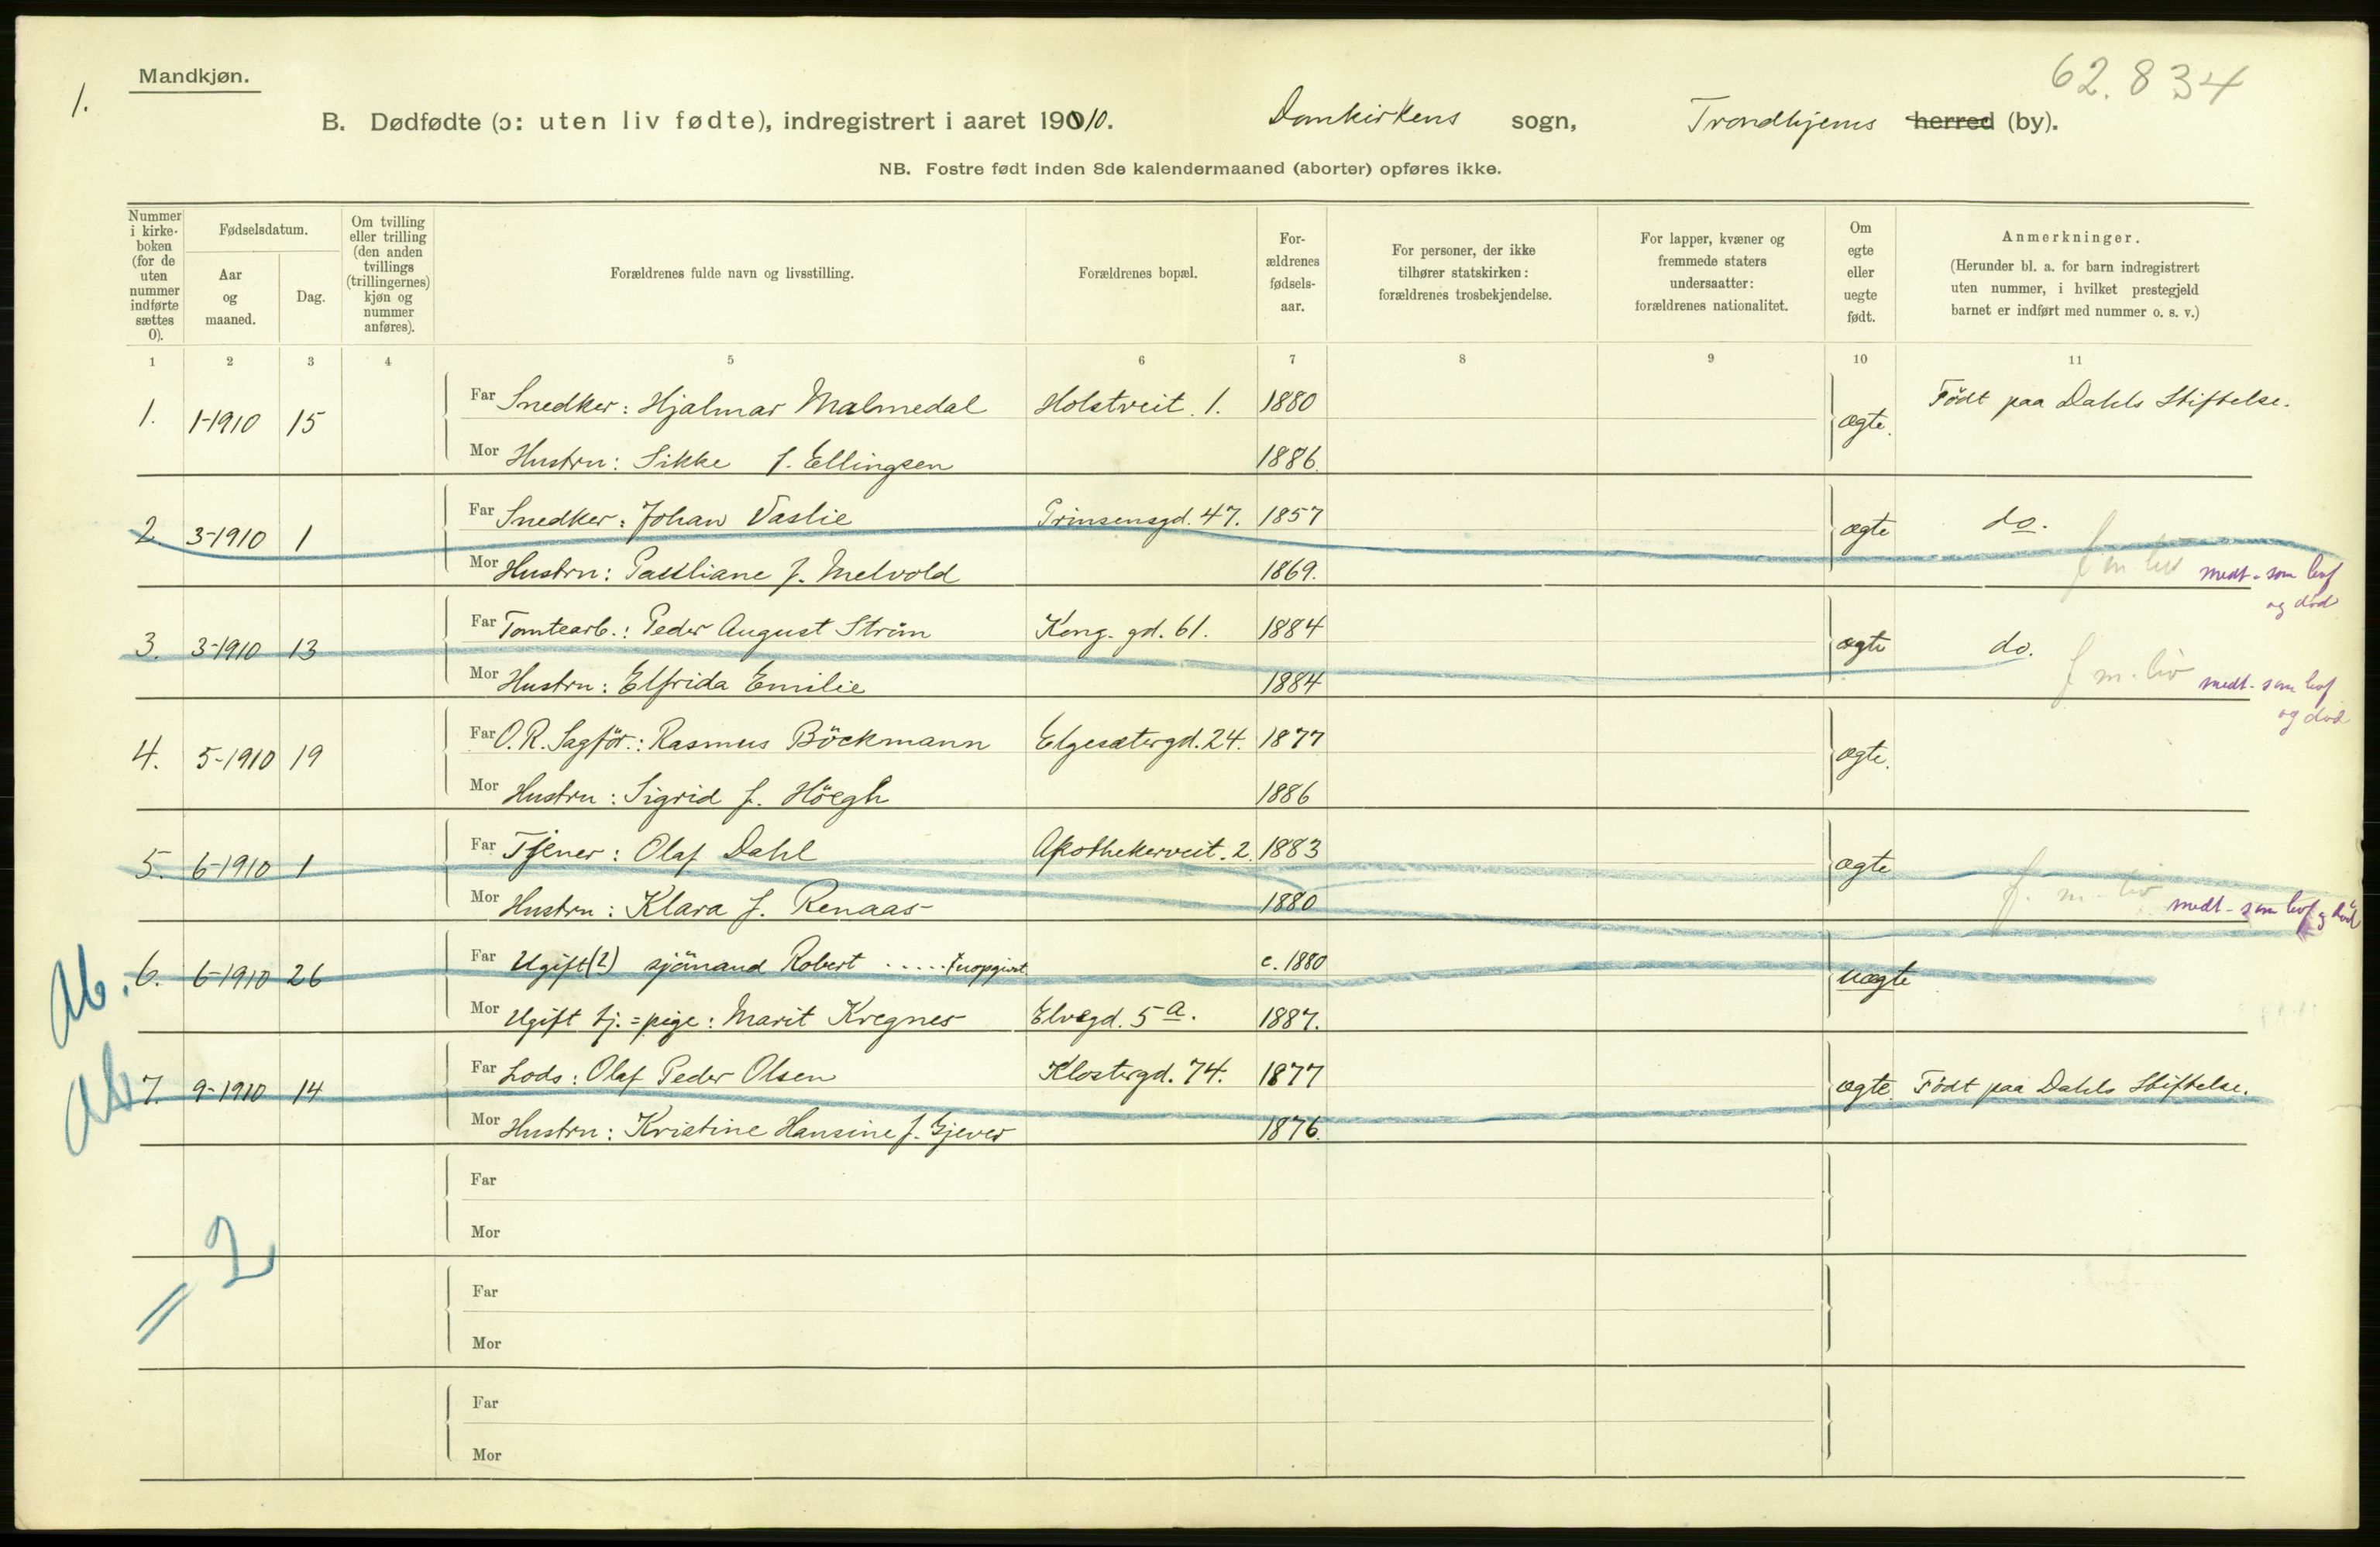 Mandkjøn.
1.
62.834
B. Dødfødte (ɔ: uten liv fødte), indregistrert i aaret 1910. Domkirkens sogn, Trondhjems herred (by).
NB. Fostre født inden 8de kalendermaaned (aborter) opføres ikke.
Nummer i kirke-boken (for de uten nummer indførte sættes 0).
Fødselsdatum.
Aar og maaned.
Dag.
Om tvilling eller trilling (den anden tvillings (trillingernes) kjøn og nummer anføres).
Forældrenes fulde navn og livsstilling.
Forældrenes bopæl.
For-ældrenes fødsels-aar.
For personer, der ikke tilhører statskirken: forældrenes trosbekjendelse.
For lapper, kvæner og fremmede staters undersaatter: forældrenes nationalitet.
Om egte eller uegte født.
Anmerkninger.
(Herunder bl. a. for barn indregistrert uten nummer, i hvilket prestegjeld barnet er indført med nummer o. s. v.)
1 2 3 4 5 6 7 8 9 10 11
1. 1-1910 15 Far Snedker: Hjalmar Malmedal Holstveit. 1. 1880 ægte. Födt paa Dahls Stiftelse.
Mor Hustru: Sikke f. Ellingsen 1886.
2. 3-1910 1 Far Snedker: Johan Vaslie Prinsensgd. 47. 1857 ægte do.
Mor Hustru: f. Melvold 1869. f m liv medt. som lev og död
3. 3-1910 13 Far Tomtearb.: Peder August Ström Kong. gd. 61. 1884 ægte do.
Mor Hustru: Elfrida Emilie 1884 f m. liv medt. som lev og död
4. 5-1910 19 Far O. R. Sagför.: Rasmus Böckmann Elgesætergd. 24. 1877 ægte.
Mor Hustru: Sigrid f. Höegh 1886
5. 6-1910 1 Far Tjener: Olaf Dahl Apothekerveit. 2. 1883 ægte
Mor Hustru: Klara f. Renaas 1880 f. m. liv medt. som lev og död
Ab. 6. 6-1910 26 Far Ugift(?) sjömand Robert ..... c. 1880 uægte
Mor Ugift tj.=pige: Marit Kregnes Elvegd. 5 a. 1887.
Ab 7. 9-1910 14 Far Lods: Olaf Peder Olsen Klostergd. 74. 1877 ægte. Födt paa Dahls Stiftelse.
Mor Hustru: Kristine Hansine f. Gjever 1876.
Far
Mor
= 2
Far
Mor
Far
Mor